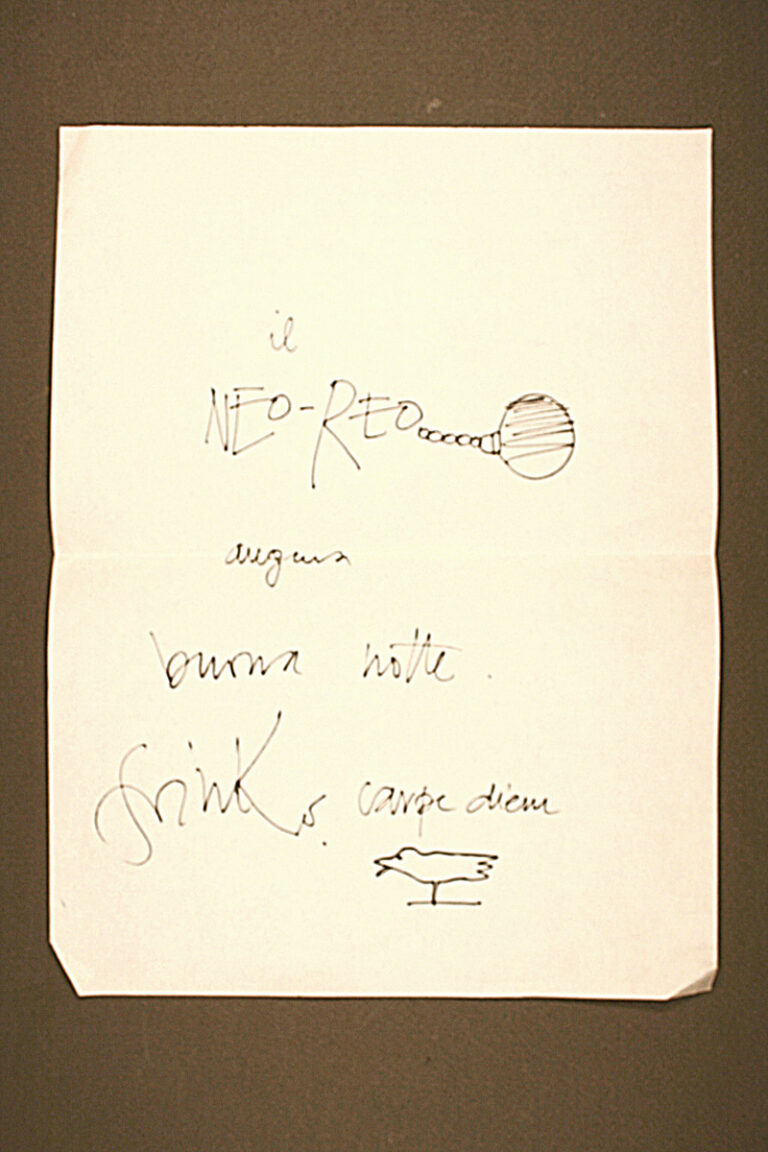 il
NEO-REO
augura
buona notte.
carpe diem